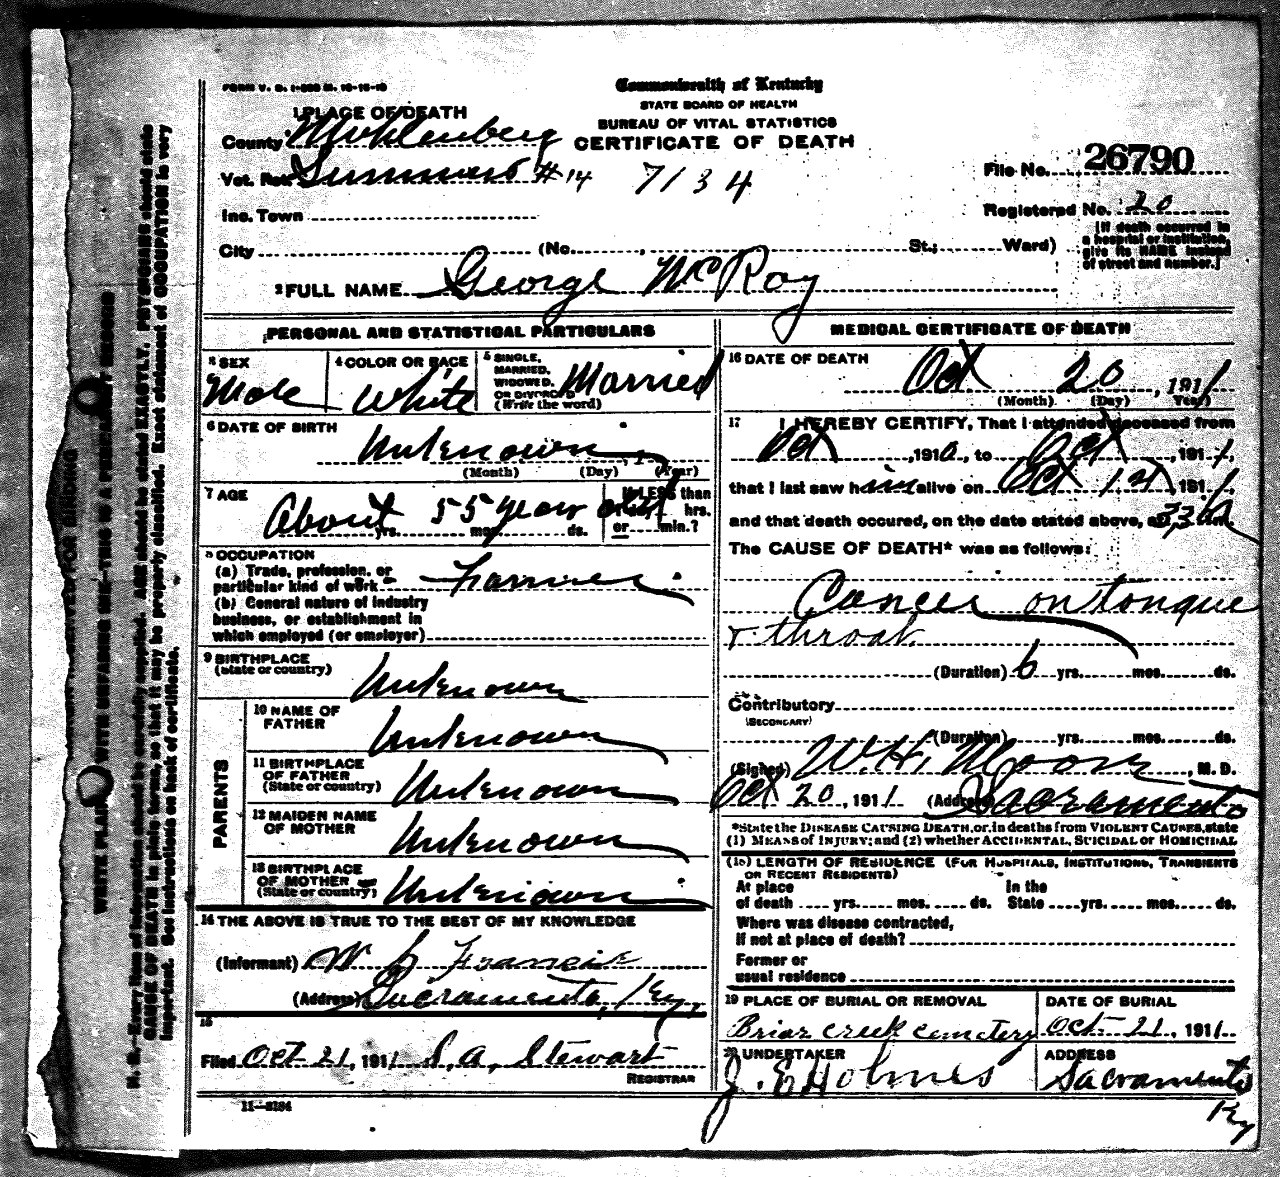 FORM V. S. 1-
Commonwealth of Kentucky
STATE BOARD OF HEALTH
BUREAU OF VITAL STATISTICS
CERTIFICATE OF DEATH
1 PLACE OF DEATH
County Muhlenberg
Vot. Summers #14 7134
File No. 26790
Inc. Town
Registered No. 20
[If death occurred in
a hospital or institution,
give its NAME instead
of street and number.]
City (No. , St.; Ward)
2 FULL NAME George McRoy
PERSONAL AND STATISTICAL PARTICULARS
3 SEX
Male
4 COLOR OR RACE
White
5 SINGLE,
MARRIED,
WIDOWED,
OR DIVORCED
(Write the word)
Married
6 DATE OF BIRTH
Unknown
(Month) (Day) (Year)
7 AGE
About 55 year old
yrs. mos. ds.
If LESS than
hrs.
or min.?
8 OCCUPATION
(a) Trade, profession, or
particular kind of work Farmer
(b) General nature of industry
business, or establishment in
which employed (or employer)
9 BIRTHPLACE
(State or country) Unknown
PARENTS
10 NAME OF
FATHER Unknown
11 BIRTHPLACE
OF FATHER
(State or country) Unknown
12 MAIDEN NAME
OF MOTHER Unknown
13 BIRTHPLACE
OF MOTHER
(State or country) Unknown
14 THE ABOVE IS TRUE TO THE BEST OF MY KNOWLEDGE
(Informant) W Francis
(Address) Sacramento, Ky,
15
Filed Oct 21, 1911 S, A, Stewart
REGISTRAR
11—3184
MEDICAL CERTIFICATE OF DEATH
16 DATE OF DEATH
Oct 20, 1911
(Month) (Day) Year)
17 I HEREBY CERTIFY, That I attended deceased from
Oct , 1910, to Oct , 1911,
that I last saw him alive on Oct 14, 1911,
and that death occured, on the date stated above, at m.
The CAUSE OF DEATH* was as follows:
Cancer on tongue
& throat.
(Duration) 6 yrs. mos. ds.
Contributory
(SECONDARY)
(Duration) yrs. mos. ds.
(Signed) W. H. Moore, M. D.
Oct 20, 1911 (Address) Sacramento
*State the DISEASE CAUSING DEATH, or, in deaths from VIOLENT CAUSES, state
(1) MEANS of INJURY; and (2) whether ACCIDENTAL, SUICIDAL or HOMICIDAL
(18) LENGTH OF RESIDENCE (FOR HOSPITALS, INSTITUTIONS, TRANSIENTS
OR RECENT RESIDENTS)
At place
of death yrs. mos. ds.
In the
State yrs. mos. ds.
Where was disease contracted,
if not at place of death?
Former or
usual residence
19 PLACE OF BURIAL OR REMOVAL
Briar creek cemetery
DATE OF BURIAL
Oct 21, 1911
20 UNDERTAKER
J. E Holmes
ADDRESS
Sacramento
Ky
WRITE PLAINLY WITH UNFADING INK—THIS IS A PERMANENT RECORD
N. B.—Every item of information should be carefully supplied. AGE should be stated EXACTLY. PHYSICIANS should state
CAUSE OF DEATH in plain terms, so that it may be properly classified. Exact statement of OCCUPATION is very
important. See instructions on back of certificate.